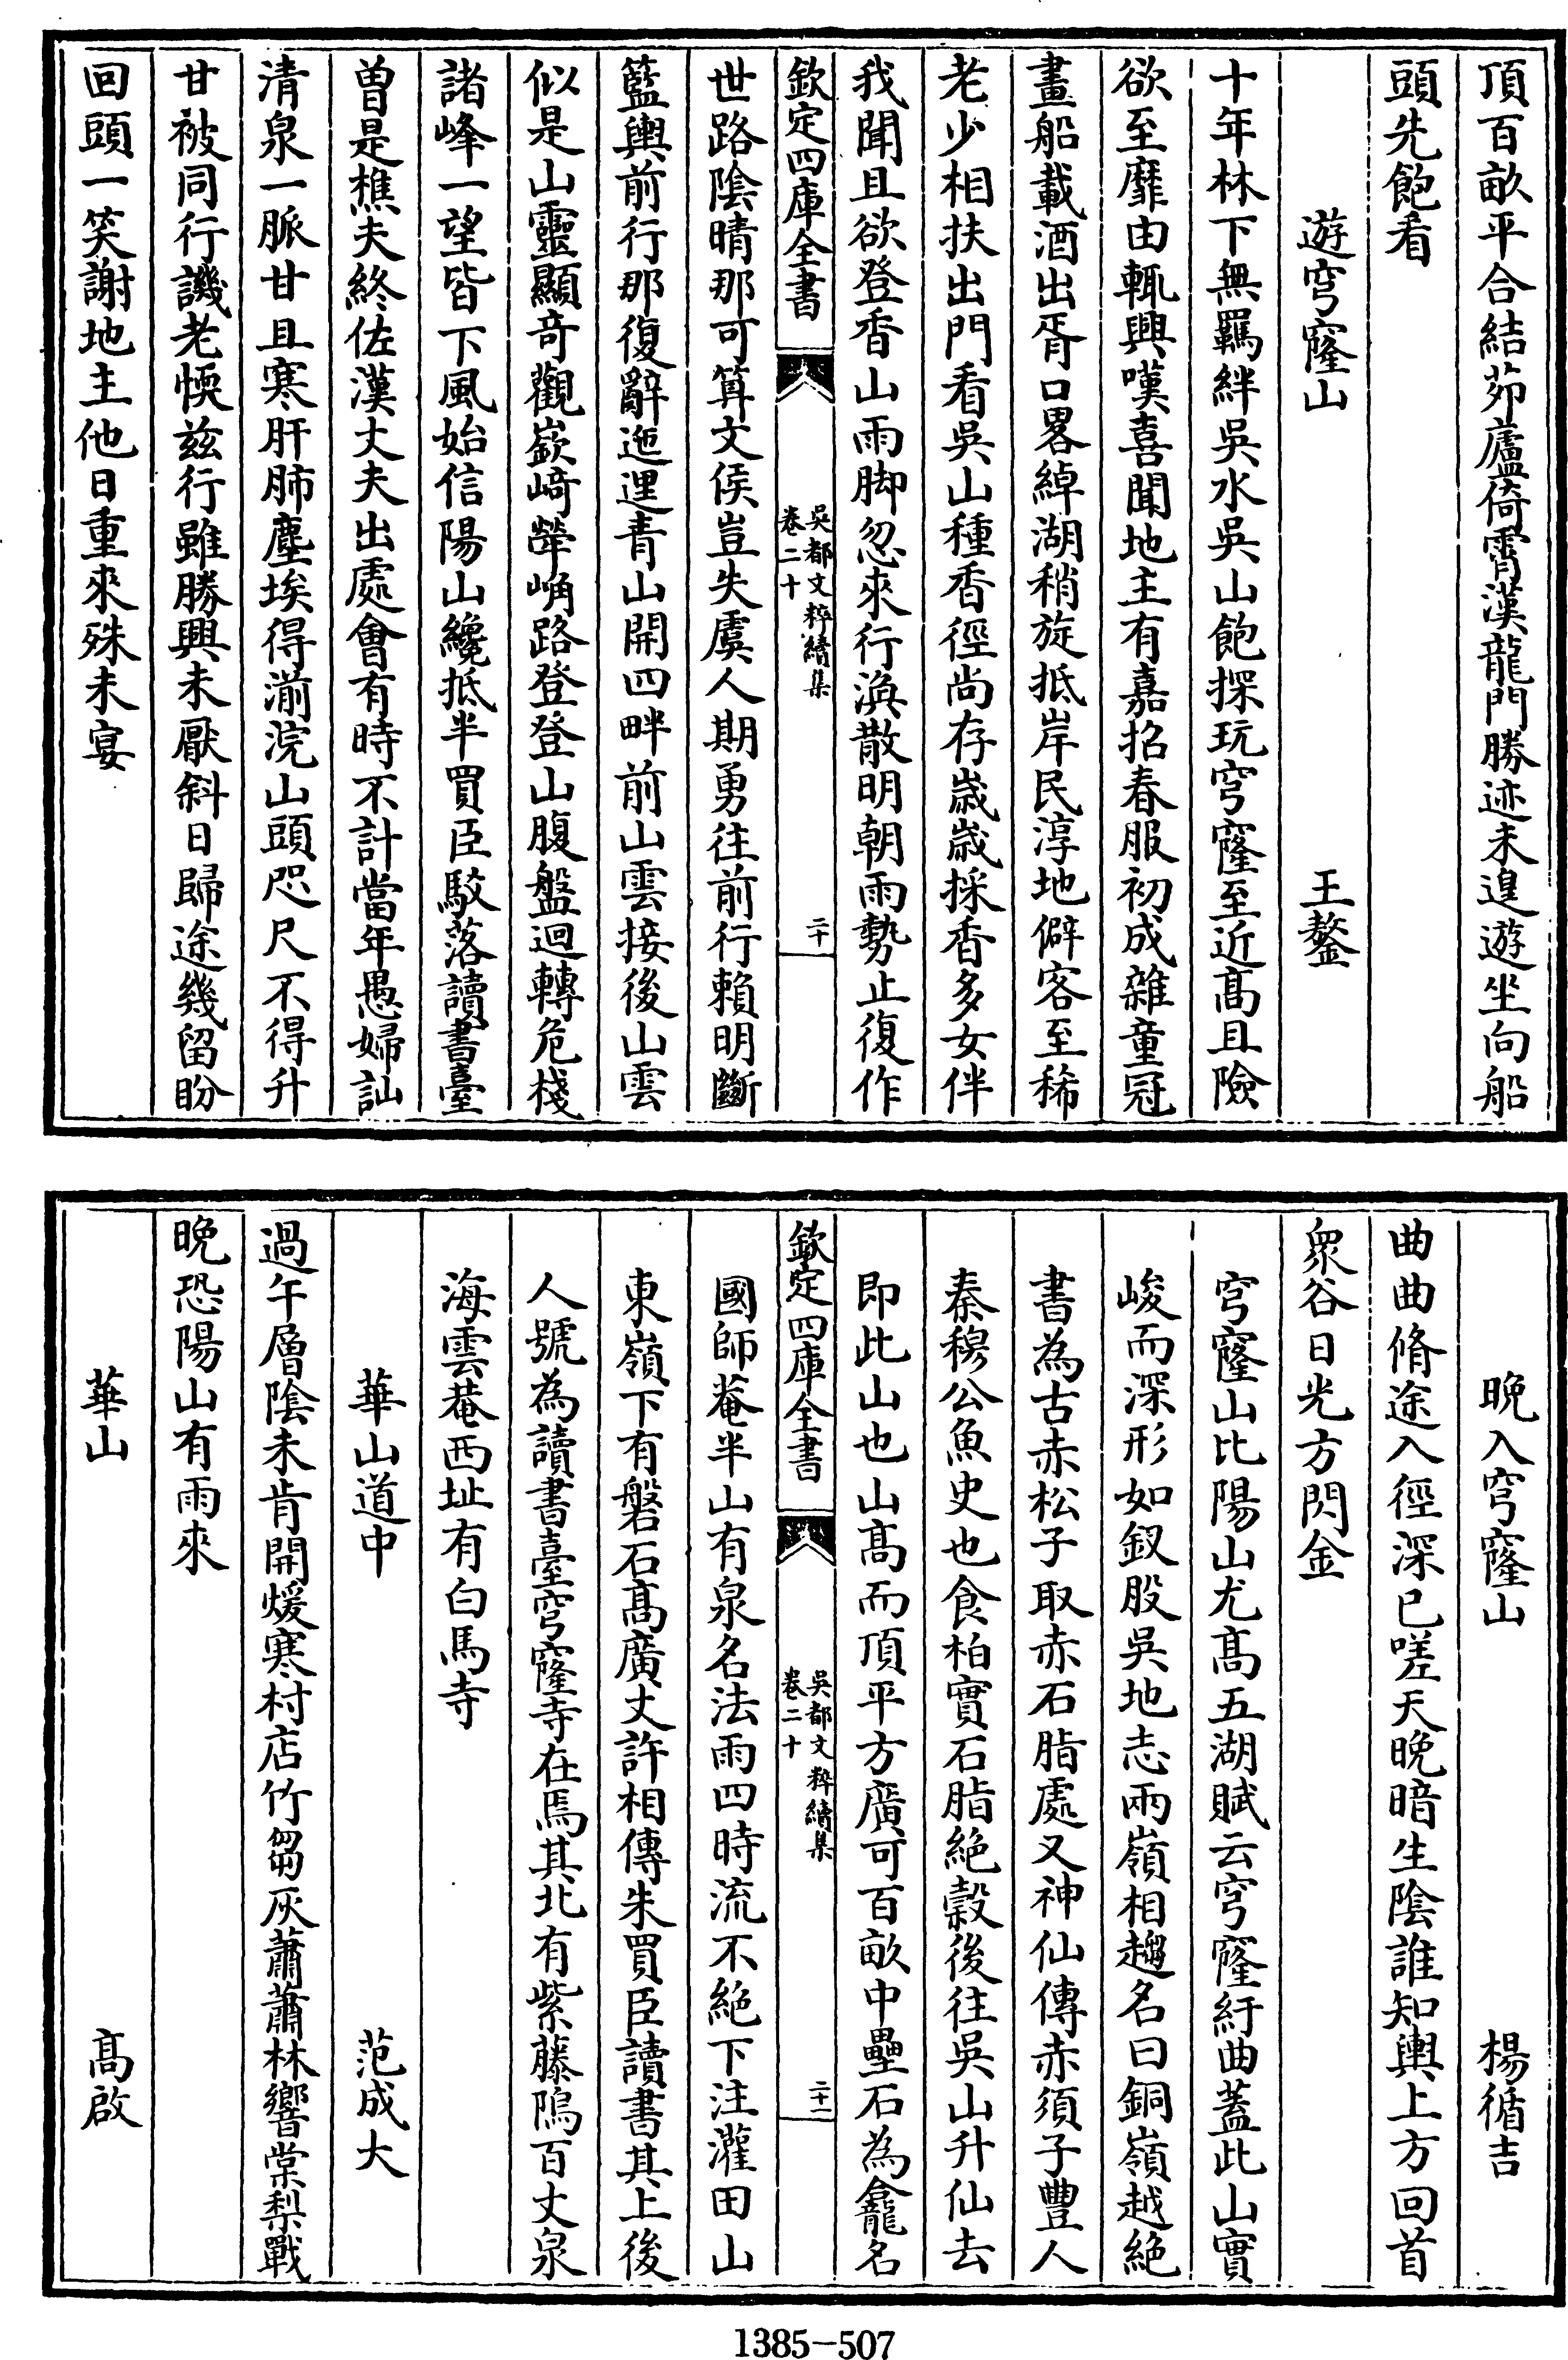 頂百畝平合結茆蘆倚霄漢龍門勝迹未遑遊坐向船
頭先飽看
遊穹窿山　王鏊
十年林下無羈絆吳水吳山飽探玩穹窿至近髙且險
欲至靡由輒興嘆喜聞地主有嘉招春服初成雜童冠
畫船載酒出胥口畧綽湖稍旋抵岸民淳地僻客至稀
老少相扶出門看吳山種香徑尚存歲歲採香多女伴
我聞且欲登香山雨脚忽來行渙散明朝雨勢止復作
欽定四庫全書
吳都文粹續集
卷二十
二十
世路陰晴那可算文侯豈失虞人期勇往前行賴明斷
籃輿前行那復辭迤逦青山開四畔前山雲接後山雲
似是山靈顯奇觀嶔﨑犖确路登登山腹盤迴轉危棧
諸峰一望皆下風始信陽山纔抵半買臣駮落讀書臺
曽是樵夫終佐漢丈夫出處會有時不計當年愚婦訕
清泉一脈甘且寒肝肺塵埃得湔浣山頭咫尺不得升
甘被同行譏老愞兹行雖勝興未厭斜日歸途幾留盼
回頭一笑謝地主他日重來殊未宴
晚入穹窿山　楊循吉
曲曲脩途入徑深已嗟天晚暗生陰誰知輿上方回首
衆谷日光方閃金
穹窿山比陽山尤髙五湖賦云穹窿紆曲葢此山實
峻而深形如釵股吳地志兩嶺相趨名曰銅嶺越絶
書為古赤松子取赤石脂處又神仙傳赤須子豐人
秦穆公魚史也食柏實石脂絶穀後往吳山升仙去
即此山也山髙而頂平方廣可百畝中壘石為龕名
欽定四庫全書
吳都文粹續集
卷二十
二十一
國師菴半山有泉名法雨四時流不絶下注灌田山
東嶺下有磐石髙廣丈許相傳朱買臣讀書其上後
人號為讀書臺穹窿寺在焉其北有紫藤隖百丈泉
海雲菴西址有白馬寺
華山道中　范成大
過午層陰未肯開煖寒村店竹芻灰蕭蕭林響棠梨戰
晚恐陽山有雨來
華山　髙啟
1385-507